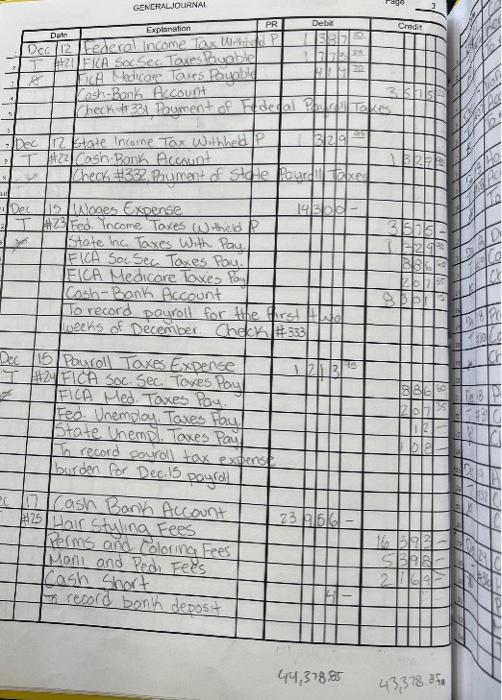 GENERAL JOURNAL
Page 3
Date Explanation PR Debit Credit
Dec 12 Federal Income Tax Withheld P 1387
T #21 FICA Soc Sec. Taxes Payable 1773
FICA Medicare Taxes Payable 414 70
Cash-Bank Account 3575
Check #331, Payment of Federal Payroll Taxes
Dec 12 State Income Tax Withheld P 1329
T #22 Cash-Bank Account 1329
Check #332, Payment of State Payroll Taxes
Dec 15 Wages Expense 14300 -
T #23 Fed. Income Taxes Withheld P 3575 -
State Inc. Taxes With. Pay. 1329
FICA Soc Sec Taxes Pay. 886 60
FICA Medicare Taxes Pay 207 35
Cash-Bank Account 8301
To record payroll for the first two
weeks of December. Check #333
Dec 15 Payroll Taxes Expense 1213 95
T #24 FICA Soc. Sec. Taxes Pay 886 60
FICA Med. Taxes Pay. 207 35
Fed. Unemploy. Taxes Pay. 12 -
State Unempl. Taxes Pay 108 -
To record payroll tax expense
burden for Dec. 15 payroll
17 Cash Bank Account 23956 -
#25 Hair Styling Fees 16393 -
Perms and Coloring Fees 5398 -
Mani and Pedi Fees 2169 -
Cash Short 4 -
To record bank deposit
44,378.85 43,378.85